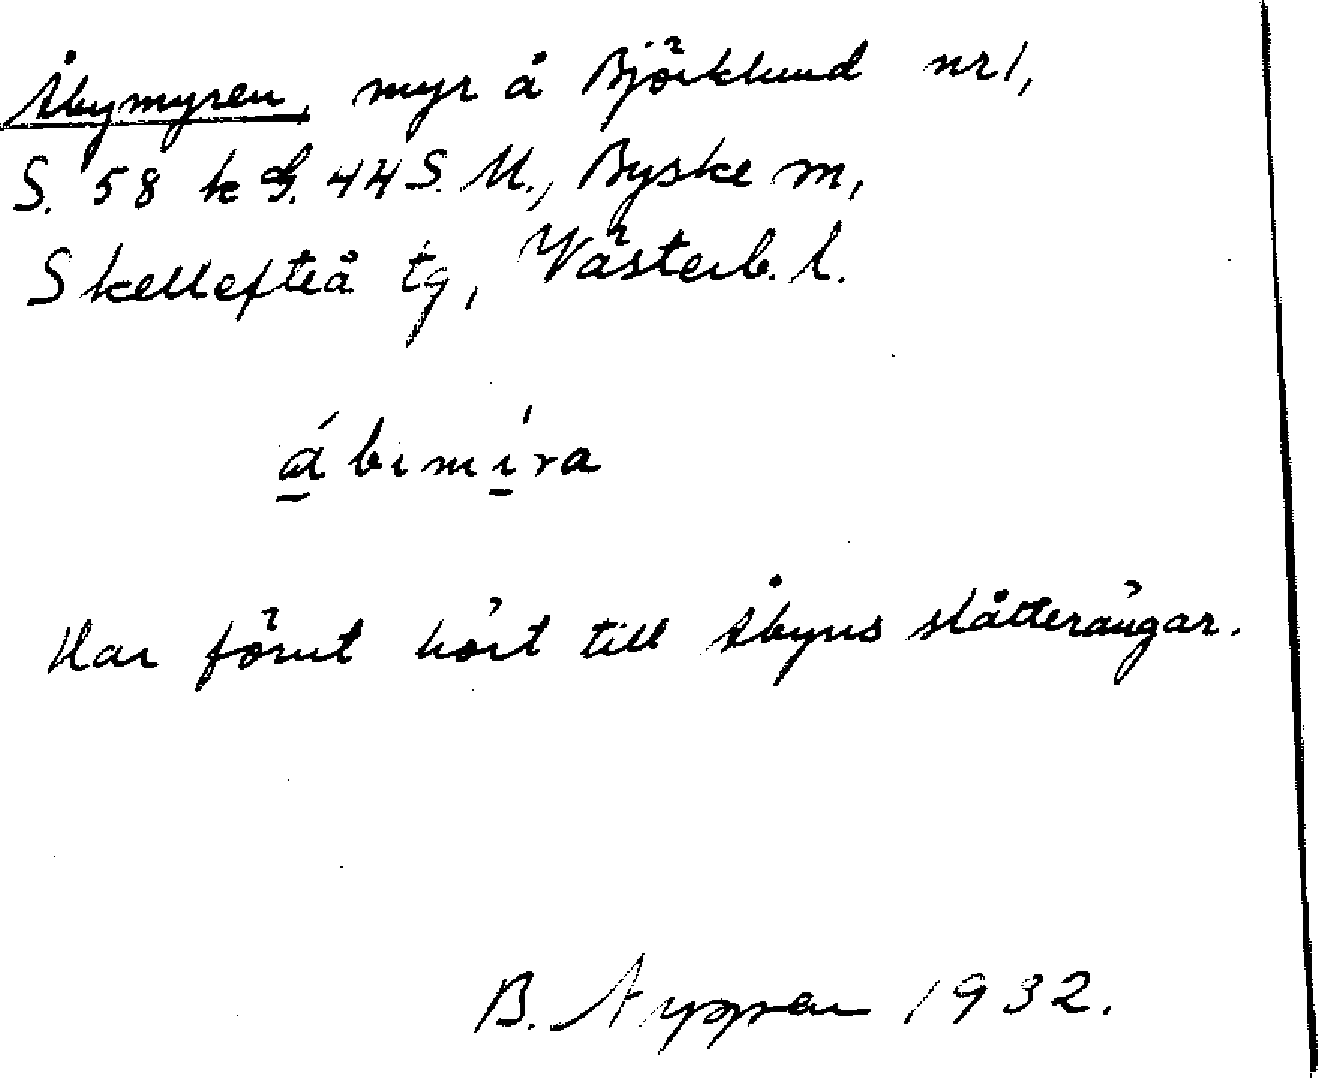 Åbymyren, myr å Björklund nr 1,
S. 58 k G. 44 S. M., Byske sn,
Skellefteå tg, Västerb. l.
ábimíra
Har förut hört till Åbyns slåtterängar.
B. 1932.